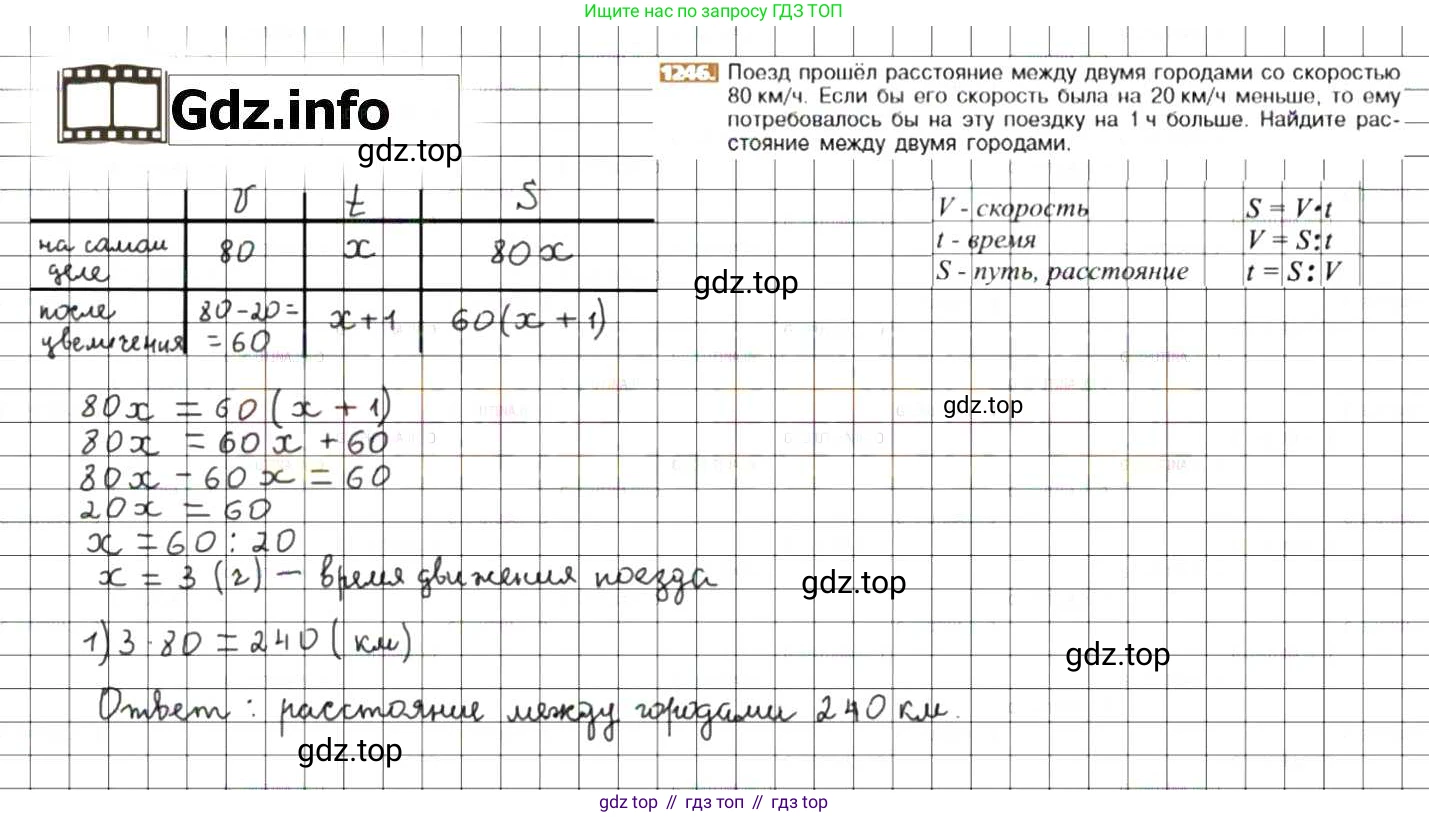 Ищите нас по запросу ГДЗ ТОП
Gdz.info
gdz.top
1246. Поезд прошёл расстояние между двумя городами со скоростью
80 км/ч. Если бы его скорость была на 20 км/ч меньше, то ему
потребовалось бы на эту поездку на 1 ч больше. Найдите рас-
стояние между двумя городами.
V - скорость S = V·t
t - время V = S:t
S - путь, расстояние t = S:V
v t S
на самом
деле 80 x 80x
gdz.top
после 80-20=
увеличения =60 x+1 60(x+1)
80x = 60(x+1)
gdz.top
80x = 60x + 60
80x - 60x = 60
20x = 60
x = 60 : 20
x = 3 (ч) — время движения поезда
gdz.top
1) 3·80 = 240 (км)
gdz.top
Ответ: расстояние между городами 240 км.
gdz.top
gdz top // гдз топ // gdz top